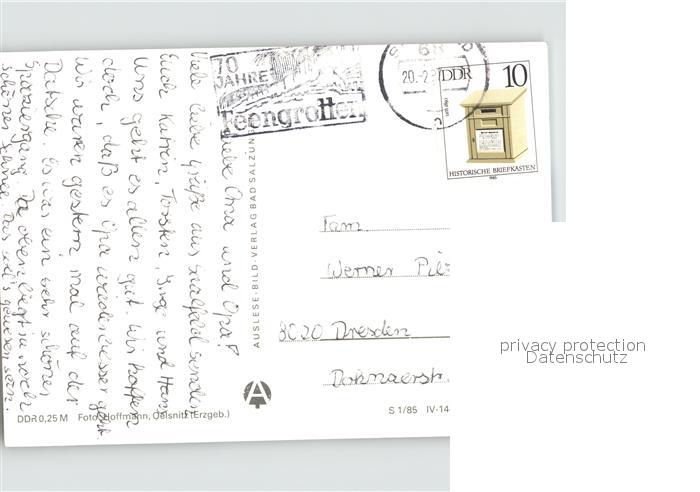 70
JAHRE
Feengrotten
68
20.-2.8
DDR 10
HISTORISCHE BRIEFKASTEN
1985
Liebe Oma und Opa!
Viele liebe Grüße aus Saalfeld senden
Euch Katrin, Torsten, Inge und Hans
Uns geht es allen gut. Wir hoffen
doch, daß es Opa wieder besser geht.
Wir waren gestern mal auf der
Es war ein sehr schöner
Spaziergang. Da oben liegt ja noch
schöner Schnee. Das soll's gewesen sein.
AUSLESE-BILD-VERLAG BAD SALZUN
Fam.
Werner
8020 Dresden
Dohnaerstr.
A
DDR 0,25 M Foto: Hoffmann, Oelsnitz (Erzgeb.)
S 1/85 IV-14
privacy protection
Datenschutz